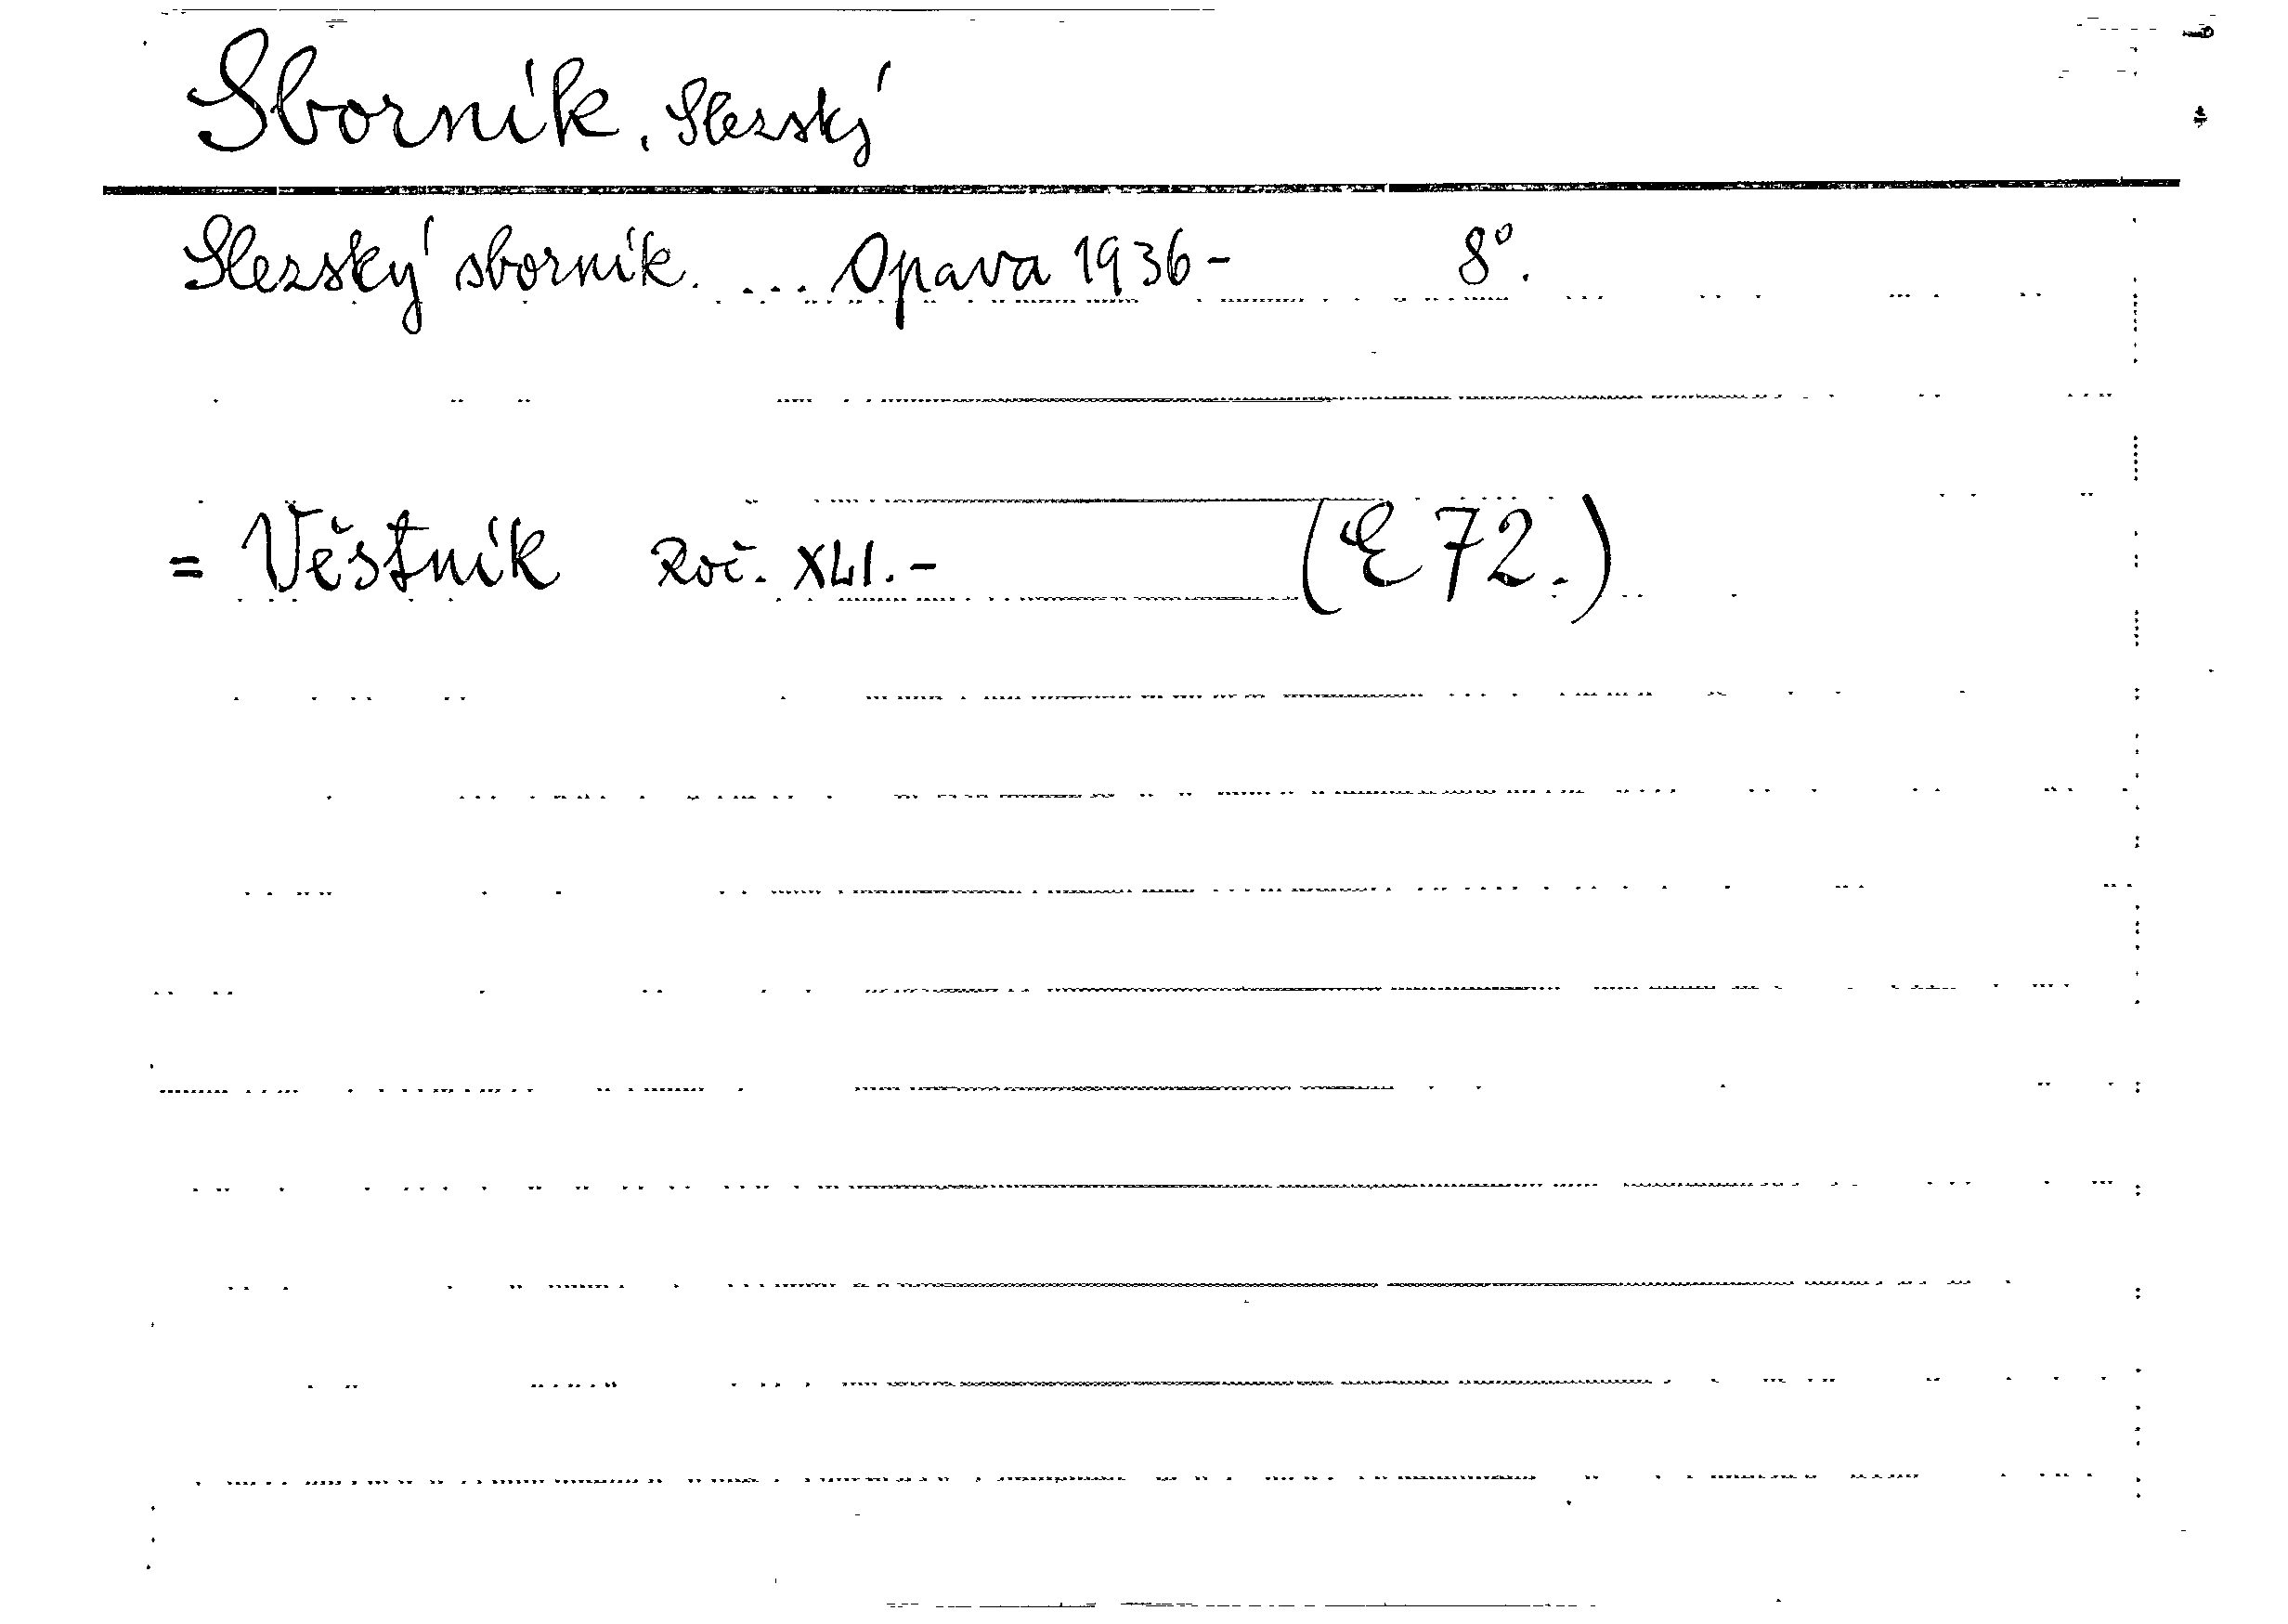 Sborník, Slezský
Slezský sborník. ... Opava 1936- 8°.
= Věstník Roč. XLI.- (E 72.)